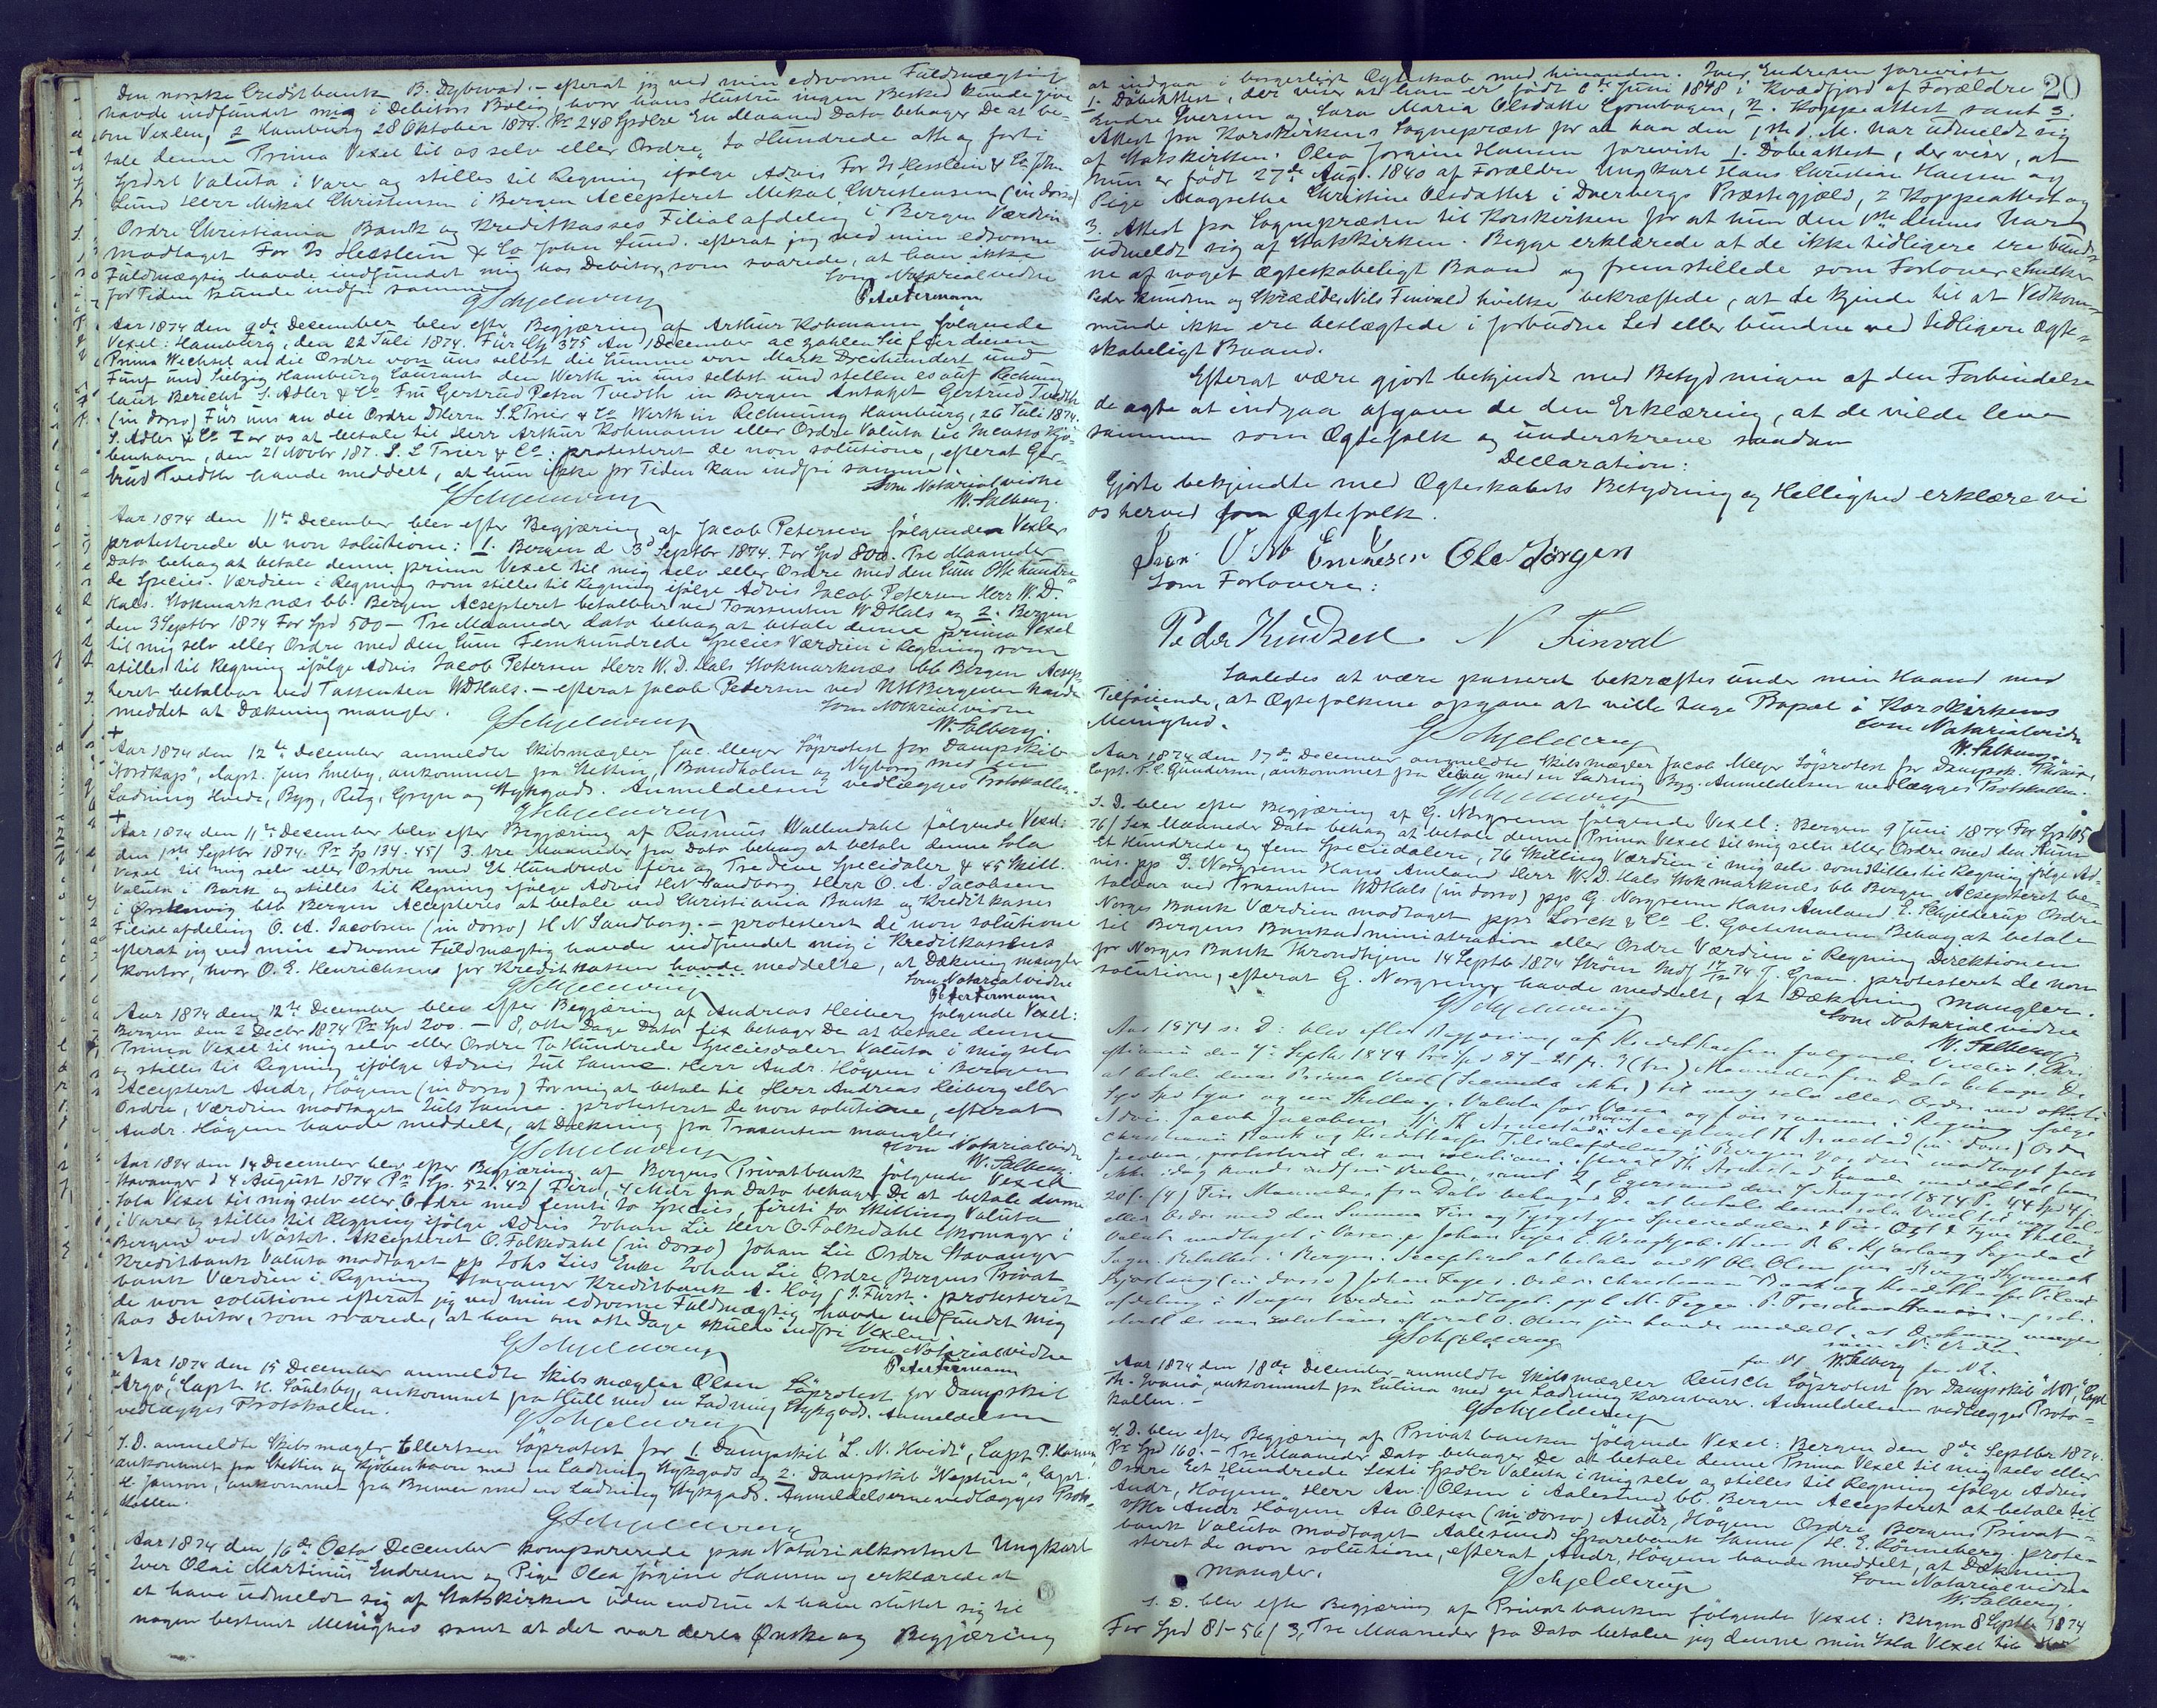 Den norske Creditbank B. Dybwad. – efterat jeg ved min edsvorne Fuldmægtig
havde indfundet mig i Debitors Bolig, hvor hans Hustru ingen Besked kunde give
om Vexlen, 2 Hamburg 28 Oktober 1874. Pr 248 Spdlre En Maaned Dato behager De at be-
tale denne Prima Vexel til os selv eller Ordre to Hundrede otte og forti
Spdlr Valuta i Vare og stilles til Regning ifølge Advis For Is Hesslein & Co John
Lund Herr Mikal Christensen i Bergen Accepteret Mikal Christensen (in dorso)
Ordre Christiania Bank og Kreditkasses Filialafdeling i Bergen Værdien
modtaget For Is Hesslein & Co John Lund. efterat jeg ved min edsvorne
Fuldmægtig havde indfundet mig hos Debitor, som svarede, at han ikke
for Tiden kunde indfri samme.
Som Notarialvidne
GSchjelderup
Peter Fermann
Aar 1874 den 9de December blev efter Begjæring af Arthur Kohmann følgende
Vexel: Hamburg, den 22 Juli 1874. Für 375 An 1 December ac zahlen Sie für diesen
Prima Wechsel an die Ordre von uns selbst die Summe von Mark Dreihundert und
Fünf und Siebzig Hamburg Courant den Werth in uns selbst und stellen es auf Rechnung
laut Bericht S. Adler & Co Frü Gertrud Petra Tvedth in Bergen Antaget Gertrud Tvedth
(in dorso) Für uns an die Ordre DHerrn S. L. Trier & Co Werth in Rechnung Hamburg, 26 Juli 1874.
S. Adler & Co For os at betale til Herr Arthur Kohmann eller Ordre Valuta til Incasso Kjø-
benhavn, den 21 Novbr 187. S. L Trier & Co: protesteret de non solutione, efterat Ger-
trud Tvedth havde meddelt, at hun ikke for Tiden kan indfri samme.
Som Notarialvidne
GSchjelderup
W. Salberg.
Aar 1874 den 11te December blev efter Begjæring af Jacob Petersen følgende Vexler
protesterede de non solutione: 1. Bergen d 3d Septbr 1874. For Spd 800. Tre Maaneder
Dato behag at betale denne prima Vexel til mig selv eller Ordre med den Sum Otte hundre-
de Species. Værdien i Regning som stilles til Regning ifølge Advis Jacob Petersen Herr W. D.
Hals. Stokmarknæs bb. Bergen Accepteret betalbar ved Trassenten WDHals og 2. Bergen
den 3 Septbr 1874 For Spd 500 – Tre Maaneder dato behag at betale denne prima Vexel
til mig selv eller Ordre med den Sum Femhundrede Species Værdien i Regning som
stilles til Regning ifølge Advis Jacob Petersen Herr W. D. Hals Stokmarknæs bb Bergen Accep-
teret betalbar ved Tassenten WDHals. – efterat Jacob Petersen ved Bergersen havde
meddelt at Dækning mangler.
Som Notarialvidne
GSchjelderup
W. Salberg.
Aar 1874 den 12te December anmeldte Skibsmægler Jac. Meyer Søprotest for Dampskib
"Nordkap", Capt. Jens Smeby, ankommet fra Stettin, Bandholm og Nyborg med en
Ladning Hvede, Byg, Rug, Gryn og Stykgods. Anmeldelsen vedlægges Protokollen.
GSchjelderup
Aar 1874 den 11te December blev efter Begjæring af Rasmus Wallendahl følgende Vexel:
den 1ste Septbr 1874. Pr Sp 134. 45/ 3. tre Maaneder fra Dato behag at betale denne Sola
Vexel til mig selv eller Ordre med Et Hundrede fire og Tredive Specidaler & 45 Skill.
Valuta i Bark og stilles til Regning ifølge Advis H. N Sandborg Herr O. A. Jacobsen
i Ørstenvig btb Bergen Accepteres at betale ved Christiania Bank og Kreditkasses
Filialafdeling O. A. Jacobsen (in dorso) H. N Sandborg. – protesteret de non solutione
efterat jeg ved min edsvorne Fuldmægtig havde indfundet mig i Kreditkassens
Kontor, hvor O. E. Henrichsens for Kreditkassen havde meddelte, at Dækning mangler
Som Notarialvidne
GSchjelderup
Peter Fermann
Aar 1874 den 12te December blev efter Begjæring af Andreas Heiberg følgende Vexel:
Bergen den 2 Decbr 1874 Pr Spd 200. – 8, otte Dage Dato fix behager De at betale denne
Prima Vexel til mig selv eller Ordre To Hundrede Speciesdaler Valuta i mig selv
og stilles til Regning ifølge Advis Juls Sanne. Herr Andr. Høgem i Bergen
Accepteret Andr. Högem (in dorso) For mig at betale til Herr Andreas Heiberg eller
Ordre, Værdien modtaget Juls Sanne: protesteret de non solutione, efterat
Andr. Högem havde meddelt, at Dækning fra Trasenten mangler
Som Notarialvidne
GSchjelderup
W. Salberg.
Aar 1874 den 14 December blev efter Begjæring af Bergens Privatbank følgende Vexel
Stavanger d 4 August 1874 Pr Sp. 52. 42/ Fire, 4 Mdr fra Dato behager De at betale denne
Sola Vexel til mig selv eller Ordre med femti to Species, firti to Skilling Valuta
i Varer og stilles til Regning ifølge Advis Johan Lie Herr O. Folkedahl Skomager i
Bergen ved Nöstet. Akcepteret O. Folkedahl (in dorso) Johan Lie Ordre Stavanger
Kreditbank Valuta modtaget pp Johs Lies Enke Johan Lie Ordre Bergens Privat
bank Værdien i Regning Stavanger Kreditbank A. Hoy / J. Fürst. protesteret
de non solutione efterat jeg ved min edsvorne Fuldmægtig havde indfundet mig
hos Debitor, som svarede, at han om otte Dage skulde indfri Vexlen.
Som Notarialvidne
GSchjelderup
Peter Fermann
Aar 1874 den 15 December anmeldte Skibsmægler Olsen Söprotest for Dampskib
"Argo", Capt. H. Soulsby, ankommet fra Hull med en Ladning Stykgods. Anmeldelsen
vedlægges Protokollen.
GSchjelderup
S. D. anmeldte Skibsmægler Ellertsen Söprotest for 1. Dampskib "L. N. Hvidt", Capt. P. Hansen,
ankommet fra Stettin og Kjøbenhavn med en Ladning Stykgods og 2. Dampskib "Neptun", Capt.
H. Janson, ankommet fra Bremen med en Ladning Stykgods. Anmeldelserne vedlægges Proto-
kollen.
GSchjelderup
Aar 1874 den 16de December komparerede paa Notarialkontoret Ungkarl
Iver Olai Martinus Endresen og Pige Olea Jørgine Hansen og erklærede at
at have udmeldt sig af Statskirken uden endnu at have sluttet sig til
nogen bestemt Menighed samt at det var deres Ønske og Begjæring
20
at indgaa i borgerligt Ægteskab med hinanden. Iver Endresen foreviste
1. Dobeattest, der viser at han er født 6te Juni 1848 i Kvædfjord af Forældre
Endre Iversen og Sara Maria Olsdatter Gombogen, 2. Koppeattest samt 3.
Attest fra Korskirkens Sognepræst for at han den 1ste d. M. har udmeldt sig
af Statskirken. Olea Jorgine Hansen foreviste 1. Dobeattest, der viser, at
hun er født 27de Aug. 1840 af Forældre Ungkarl Hans Christian Hansen og
Pige Magrethe Christine Olsdatter i Dverbergs Præstegjæld, 2 Koppeattest og
3. Attest fra Sognepræsten til Korskirken for at hun den 1ste dennes har
udmeldt sig af Statskirken. Begge erklærede at de ikke tidligere ere bund-
ne af noget ægteskabeligt Baand og fremstillede som Forlovere Snedker
Peder Knudsen og Skrædder Nils Finvald hvilke bekræftede, at de kjende til at Vedkom-
mende ikke ere beslægtede i forbudne Led eller bundne ved tidligere ægte-
skabeligt Baand.
Efterat være gjort bekjendt med Betydningen af den Forbindelse
de agte at indgaa afgave de den Erklæring, at de vilde leve
sammen som Ægtefolk og underskreve saadan
Declaration:
Gjorte bekjendte med Ægteskabets Betydning og Hellighed erklære vi
os herved som Ægtefolk.
Som Forlovere:
Peder Knudsen N Finval
Saaledes at være passeret bekræftes under min Haand med
Tilføiende, at Ægtefolkene opgave at ville tage Bopæl i Korskirkens
Menighed.
Som Notarialvidne
GSchjelderup
W. Salberg.
Aar 1874 den 17de December anmeldte Skibsmægler Jacob Meyer Söprotest for Dampsk.
Capt. P. C. Gundersen, ankommet fra Libau med en Ladning Byg. Anmeldelsen vedlægges Protokollen.
GSchjelderup
S. D. blev efter Begjæring af G. Norgrenn følgende Vexel: Bergen 9 Juni 1874 For Sp. 105
76/ Sex Maaneder Dato behag at betale denne Prima Vexel til mig selv eller Ordre med den Sum
Et Hundrede og fem Speciedalere, 76 Skilling Værdien i mig selv som stilles til Regning ifølge Ad-
vis. pp G. Norgrenn Hans Amland Herr W. D. Hals Stokmarknæs bb Bergen Accepteret be-
talbar ved Trasenten WDHals (in dorso) pp G. Norgrenn Hans Amland E. Schjelderup Ordre
Norges Bank Værdien modtaget ppr Lorck & Co C. Goetemann Behag at betale
til Bergens Bankadministration eller Ordre Værdien i Regning Direktionen
for Norges Bank Throndhjem 14 Septb 1874 Ström J. Gran. protesteret de non
solutione, efterat G. Norgrenn havde meddelt, at Dækning mangler.
Som Notarialvidne
GSchjelderup
W. Salberg
Aar 1874 s: D: blev efter Begjæring af Kreditkassen følgende Vexler 1. Chri-
stiania den 7de Septbr 1874 87 – 21 pr. 3 (tre) Maaneder fra Dato behager De
at betale denne Prima Vexel (Secunda ikke) til mig selv eller Ordre med otteti
Syv Spd tyve og en Skilling, Valuta for Varer og før samme i Regning ifølge
Advis Jacob Jacobsen Hr. Th Arnestad Bergen Accepteret Th Arnestad (in dorso) Ordre
Christiania Bank og Kreditkasses Filialafdeling i Bergen Værdien modtaget Jacob
Jacobsen, protesteret de non solutione, efterat Th Arnestad havde meddelt at han
ikke idag kunde indfri Vexlen, samt 2, Egersund den 7 August 1874 P. 44 Spd 4/
20/. (4) Fire Maaneder fra Dato behager De at betale denne sola Vexel til mig selv
eller Ordre med den Summa Fire og Fyrgetyve Speciedaler & Fire Ort & Tyve Skilling
Valuta modtaget i Varer
GSchjelderup
W. Salberg
Aar 1874 den 18de December anmeldte Skibsmægler Reusch Søprotest for Dampskib "Nor", Capt
Th. Ivanö, ankommet fra Sulina med en Ladning Kornvarer. Anmeldelsen vedlægges Proto-
kollen. –
GSchjelderup
S. D. blev efter Begjæring af Privatbanken følgende Vexel: Bergen den 8de Septbr 1874.
Pr Spd 160. – Tre Maaneder Dato behager De at betale denne Prima Vexel til mig selv eller
Ordre Eet Hundrede sexti Spdlr Valuta i mig selv og stilles til Regning ifølge Advis
Andr. Högem. Herr An: Olsen i Aalesund bb. Bergen Accepteret at betale til
Andr Högem An Olsen (in dorso) Andr. Högem Ordre Bergens Privat-
bank Valuta modtaget Aalesunds Sparebank Sanne / H. E. Rönneberg. prote-
steret de non solutione, efterat Andr. Högem havde meddelt, at Dækning
mangler.
Som Notarialvidne
GSchjelderup
W. Salberg.
S. D. blev efter Begjæring af Privatbanken følgende Vexel: Bergen 8 Septbr 1874
For Spd 81 – 56/ 3, Tre Maaneder fra Dato betaler jeg denne min Sola Vexel til